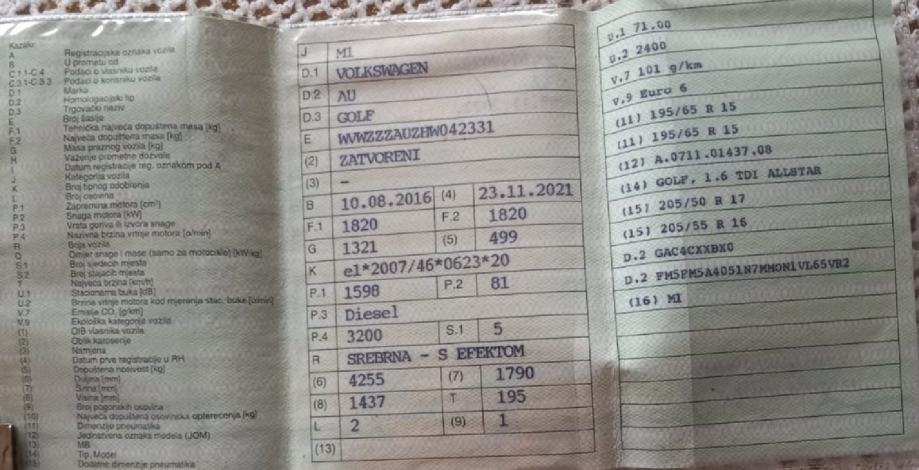 Kazalo:
A Registracijska oznaka vozila
B U prometu od
C.1.1-C.4 Podaci o vlasniku vozila
C.3.1-C.3.3 Podaci o korisniku vozila
D.1 Marka
D.2 Homologacijski tip
D.3 Trgovački naziv
E Broj šasije
F.1 Tehnička najveća dopuštena masa [kg]
F.2 Najveća dopuštena masa [kg]
G Masa praznog vozila [kg]
H Važenje prometne dozvole
I Datum registracije reg. oznakom pod A
J Kategorija vozila
K Broj tipnog odobrenja
L Broj osovina
P.1 Zapremina motora [cm³]
P.2 Snaga motora [kW]
P.3 Vrsta goriva ili izvora snage
P.4 Nazivna brzina vrtnje motora [o/min]
R Boja vozila
Q Omjer snage i mase (samo za motocikle) [kW/kg]
S.1 Broj sjedećih mjesta
S.2 Broj stajaćih mjesta
T Najveća brzina [km/h]
U.1 Stacionarna buka [dB]
U.2 Brzina vrtnje motora kod mjerenja stac. buke [o/min]
V.7 Emisija CO₂ [g/km]
V.9 Ekološka kategorija vozila
(1) OIB vlasnika vozila
(2) Oblik karoserije
(3) Namjena
(4) Datum prve registracije u RH
(5) Dopuštena nosivost [kg]
(6) Duljina [mm]
(7) Širina [mm]
(8) Visina [mm]
(9) Broj pogonskih osovina
(10) Najveća dopuštena osovinska opterećenja [kg]
(11) Dimenzije pneumatika
(12) Jedinstvena oznaka modela (JOM)
(13) MB
(14) Tip, Model
(15) Dodatne dimenzije pneumatika
J M1
D.1 VOLKSWAGEN
D.2 AU
D.3 GOLF
E WVWZZZAUZHW042331
(2) ZATVORENI
(3) –
B 10.08.2016 (4) 23.11.2021
F.1 1820 F.2 1820
G 1321 (5) 499
K e1*2007/46*0623*20
P.1 1598 P.2 81
P.3 Diesel
P.4 3200 S.1 5
R SREBRNA - S EFEKTOM
(6) 4255 (7) 1790
(8) 1437 T 195
L 2 (9) 1
(13)
U.1 71.00
U.2 2400
V.7 101 g/km
V.9 Euro 6
(11) 195/65 R 15
(11) 195/65 R 15
(12) A.0711.01437.08
(14) GOLF, 1.6 TDI ALLSTAR
(15) 205/50 R 17
(15) 205/55 R 16
D.2 GAC4CXXBX0
D.2 FM5FM5A4051N7MMON1VL65VR2
(16) MI